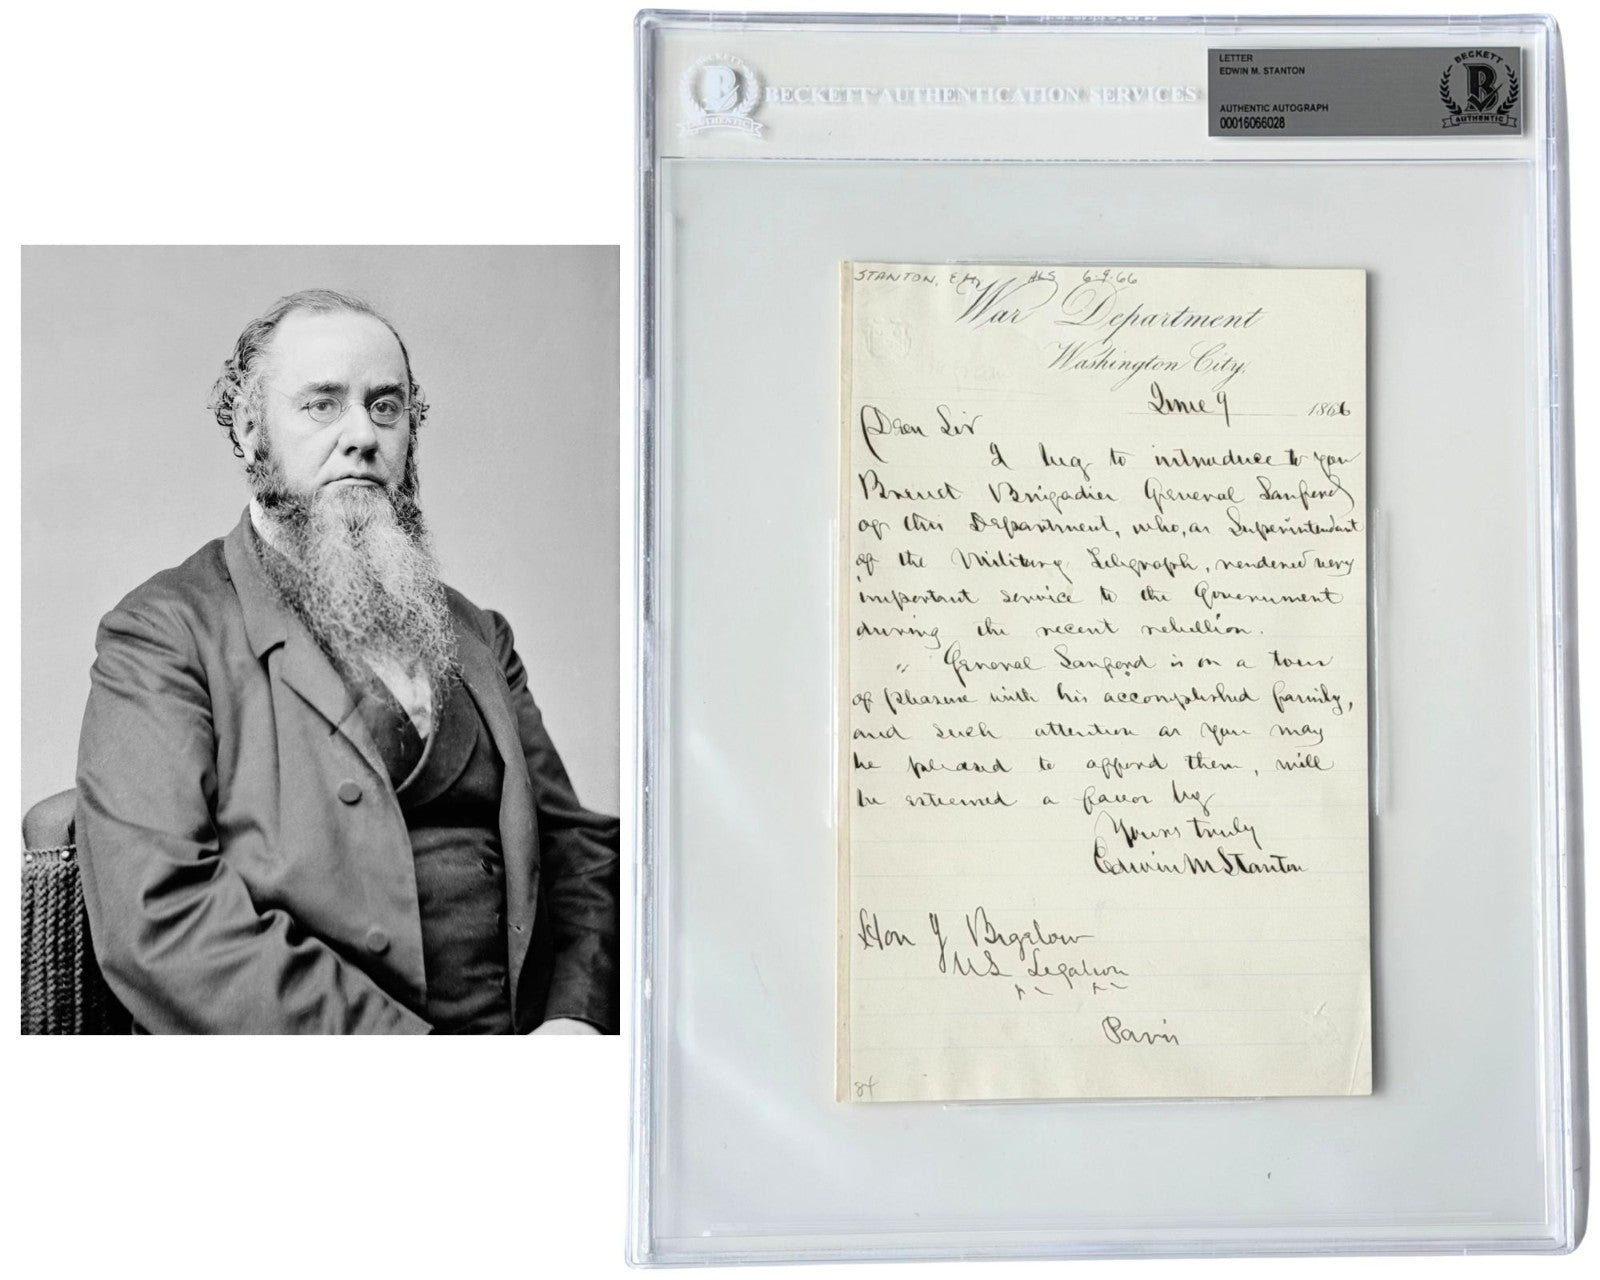 BECKETT
B
AUTHENTIC
BECKETT AUTHENTICATION SERVICES
LETTER
EDWIN M. STANTON
AUTHENTIC AUTOGRAPH
00016066028
BECKETT
B
AUTHENTIC
STANTON, E M, ALS 6-9-66
War Department
Washington City,
June 9 1866
Dear Sir
I beg to introduce to you
Brevet Brigadier General Sanford
of this Department, who, as Superintendant
of the Military Telegraph, rendered very
important service to the Government
during the recent rebellion.
" General Sanford is on a tour
of pleasure with his accomplished family,
and such attention as you may
be pleased to afford them, will
be esteemed a favor by
Yours truly
Edwin M Stanton
Hon J Bigelow
US Legation
Paris
84